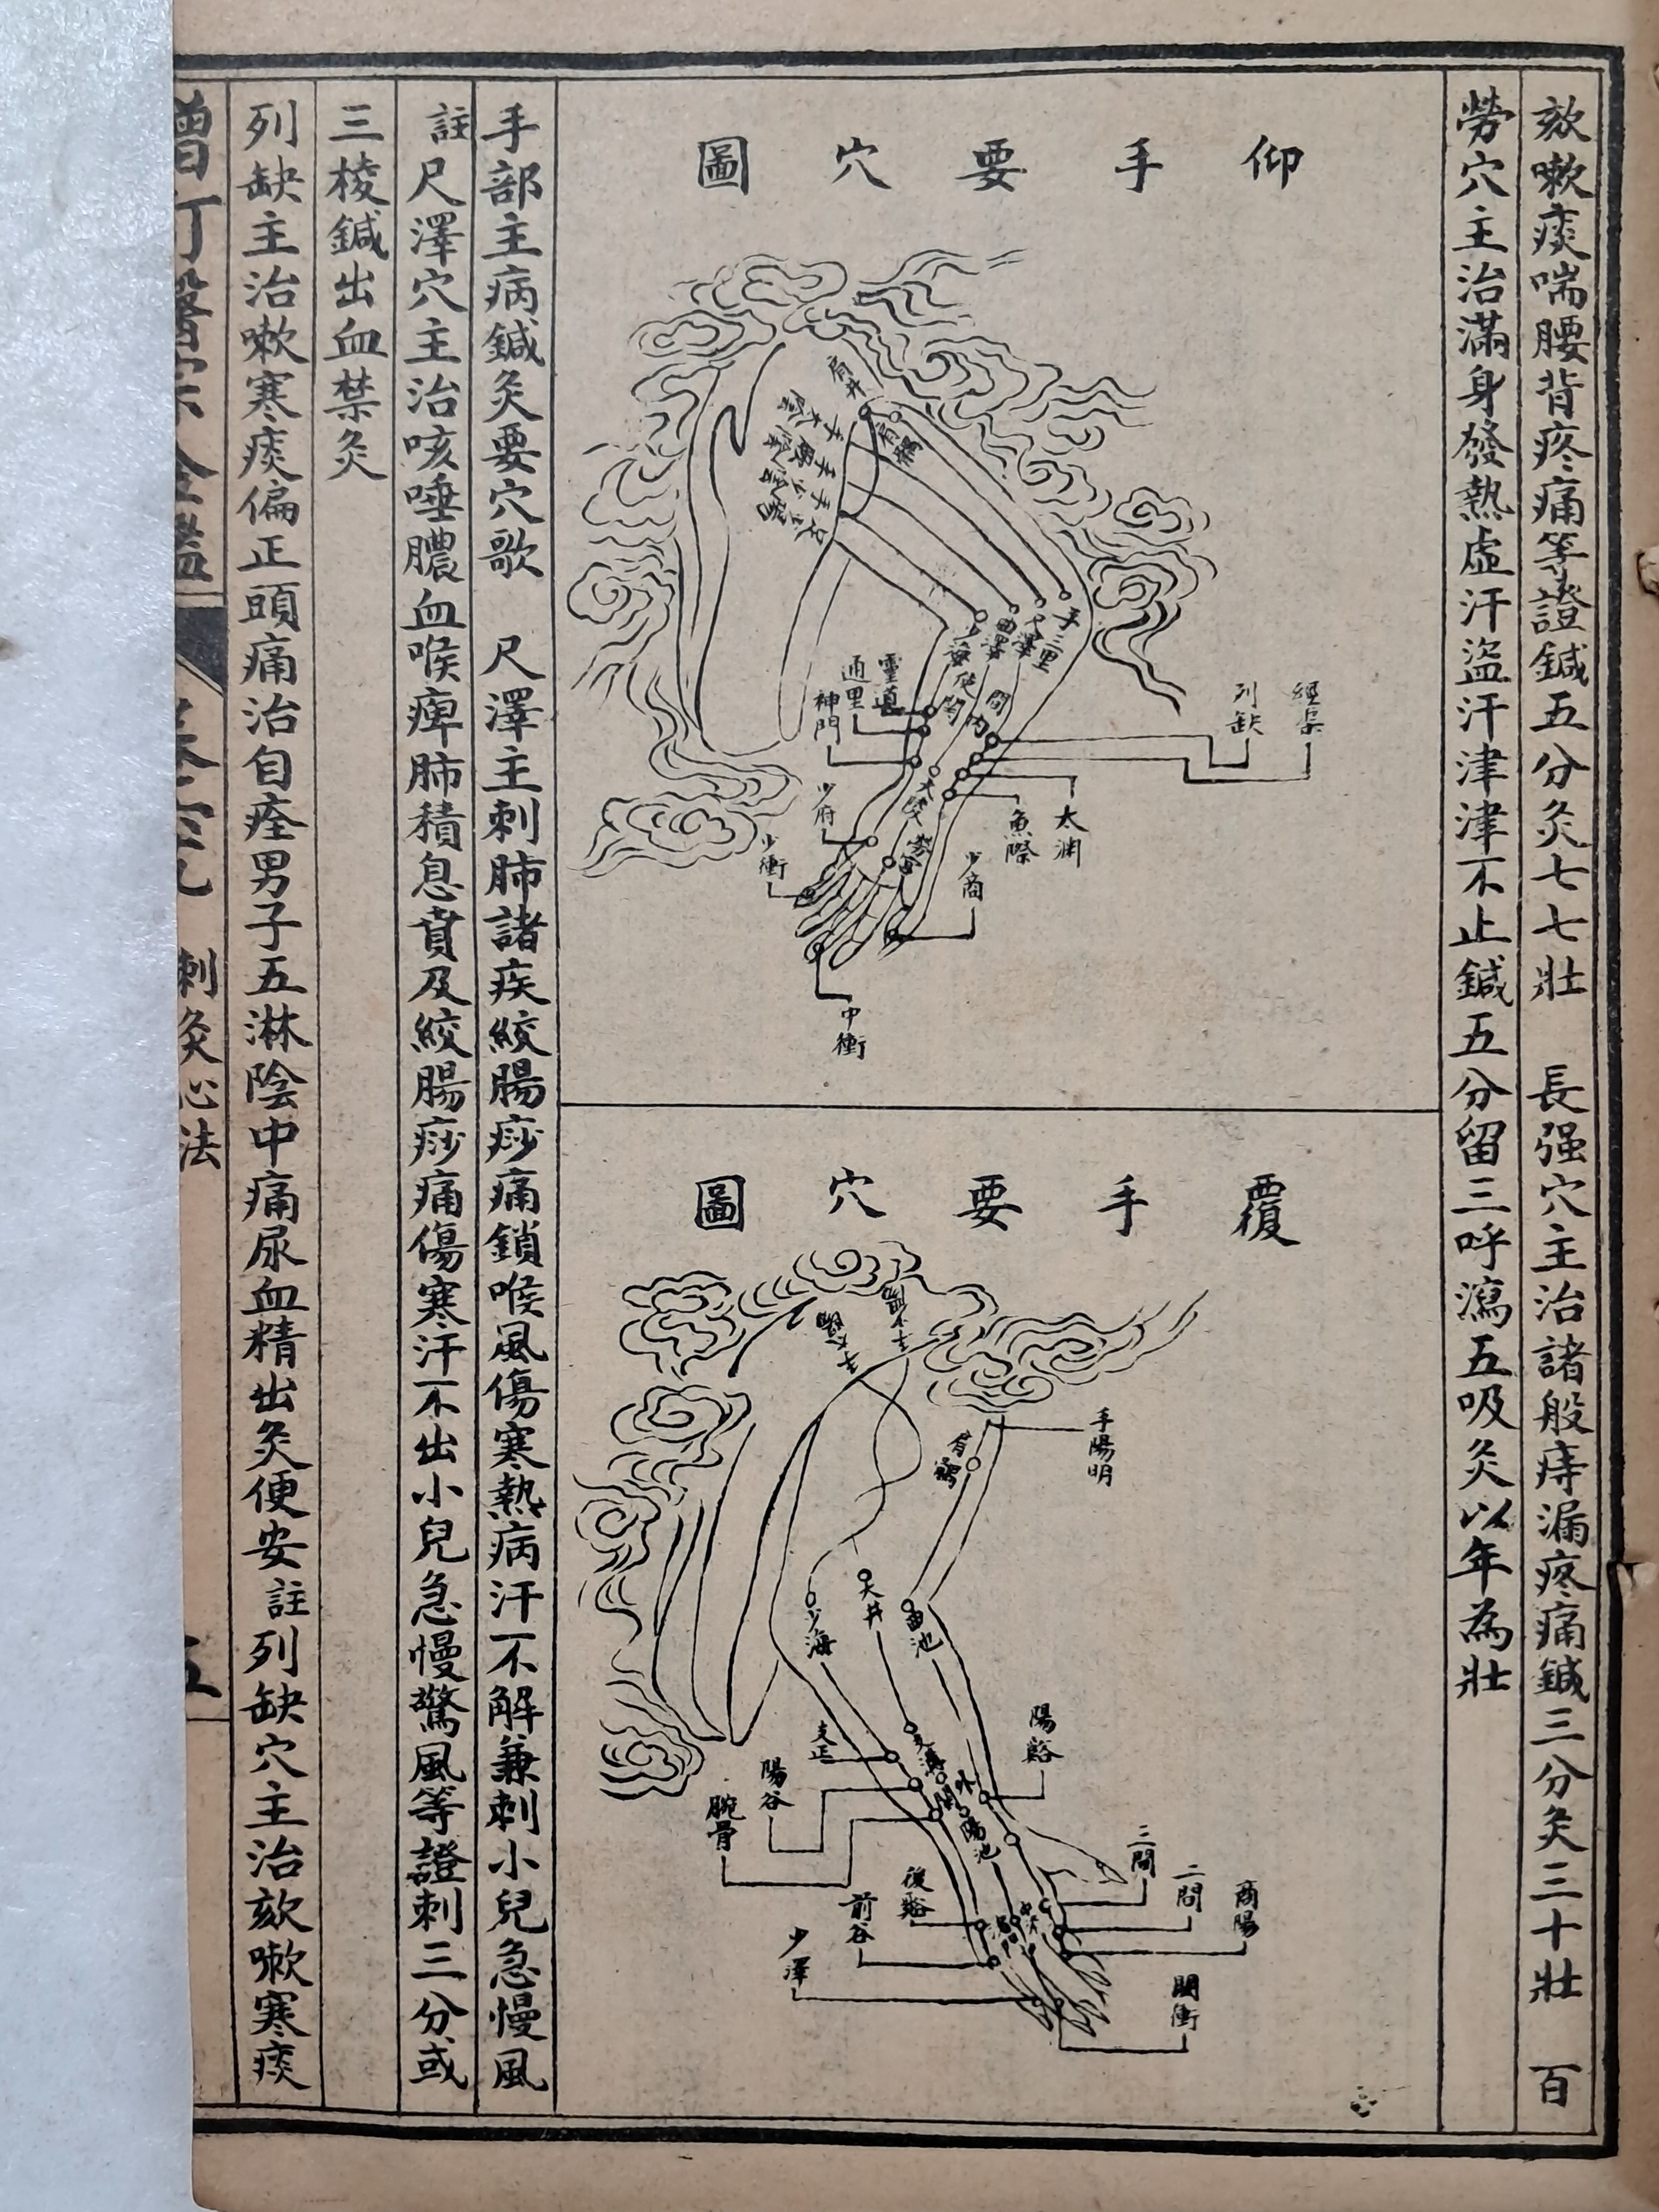 欬嗽痰喘腰背疼痛等證鍼五分灸七七壯　長强穴主治諸般痔漏疼痛鍼三分灸三十壯　百
勞穴主治滿身發熱虛汗盜汗津津不止鍼五分留三呼瀉五吸灸以年為壯
仰手要穴圖
肩井
肩髃
手太陰
手厥陰
手少陰
手三里
尺澤
曲澤
少海
間使
內關
靈道
通里
神門
列缺
經渠
太淵
魚際
大陵
勞宮
少府
少衝
少商
中衝
覆手要穴圖
手少陽
手太陽
手陽明
肩髃
天井
曲池
少海
支正
支溝
外關
陽谿
陽谷
陽池
腕骨
三間
二間
商陽
後谿
前谷
中渚
少澤
關衝
手部主病鍼灸要穴歌　尺澤主刺肺諸疾絞腸痧痛鎖喉風傷寒熱病汗不解兼刺小兒急慢風
註尺澤穴主治咳唾膿血喉痺肺積息賁及絞腸痧痛傷寒汗不出小兒急慢驚風等證刺三分或
三棱鍼出血禁灸
列缺主治嗽寒痰偏正頭痛治自痊男子五淋陰中痛尿血精出灸便安註列缺穴主治欬嗽寒痰
刺灸心法